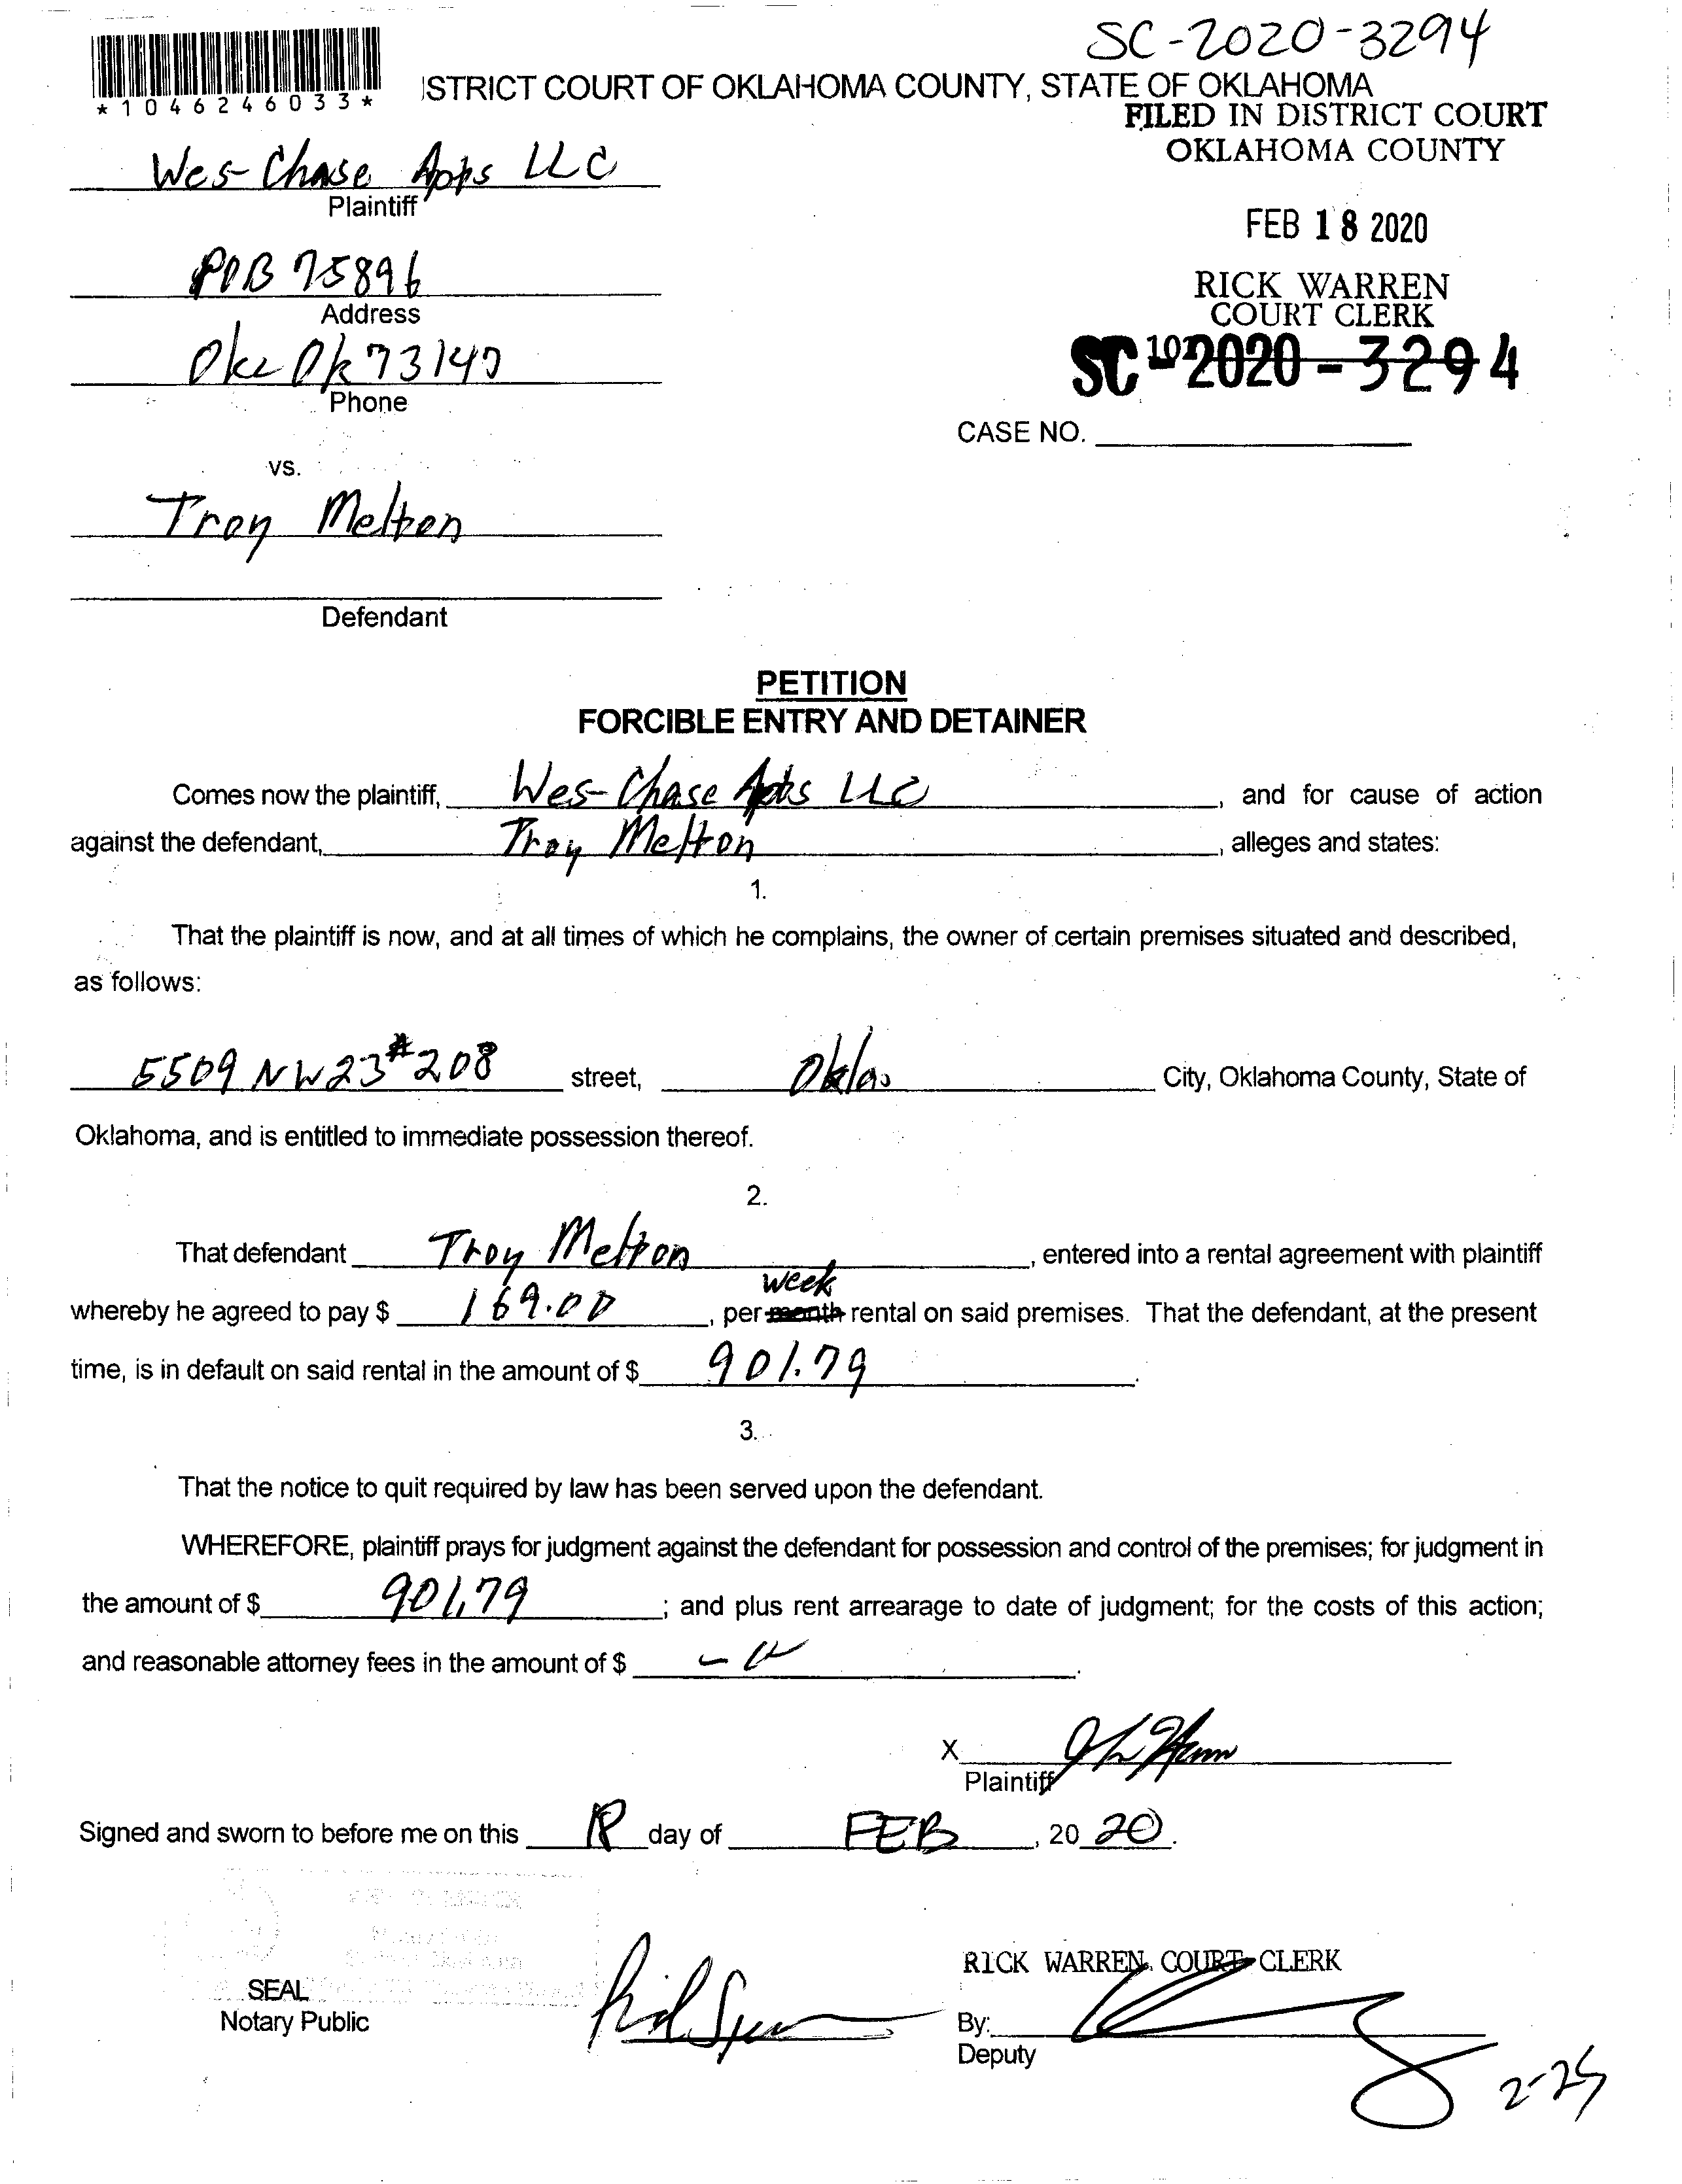 SC-2020-3294
*1046246033*
ISTRICT COURT OF OKLAHOMA COUNTY, STATE OF OKLAHOMA
FILED IN DISTRICT COURT
OKLAHOMA COUNTY
Wes-Chase Apts LLC
Plaintiff
FEB 18 2020
POB 75896
Address
RICK WARREN
COURT CLERK
Okc Ok 73147
Phone
SC 2020-3294
CASE NO.
vs.
Troy Melton
Defendant
PETITION
FORCIBLE ENTRY AND DETAINER
Comes now the plaintiff, Wes-Chase Apts LLC, and for cause of action
against the defendant, Troy Melton, alleges and states:
1.
That the plaintiff is now, and at all times of which he complains, the owner of certain premises situated and described,
as follows:
5509 NW 23 #208 street, Okla. City, Oklahoma County, State of
Oklahoma, and is entitled to immediate possession thereof.
2.
That defendant Troy Melton, entered into a rental agreement with plaintiff
week
whereby he agreed to pay $ 169.00, per month rental on said premises. That the defendant, at the present
time, is in default on said rental in the amount of $ 901.79.
3.
That the notice to quit required by law has been served upon the defendant.
WHEREFORE, plaintiff prays for judgment against the defendant for possession and control of the premises; for judgment in
the amount of $ 901.79; and plus rent arrearage to date of judgment; for the costs of this action;
and reasonable attorney fees in the amount of $
X
Plaintiff
Signed and sworn to before me on this 18 day of FEB, 20 20.
RICK WARREN, COURT CLERK
SEAL
Notary Public
By:
Deputy
2-25